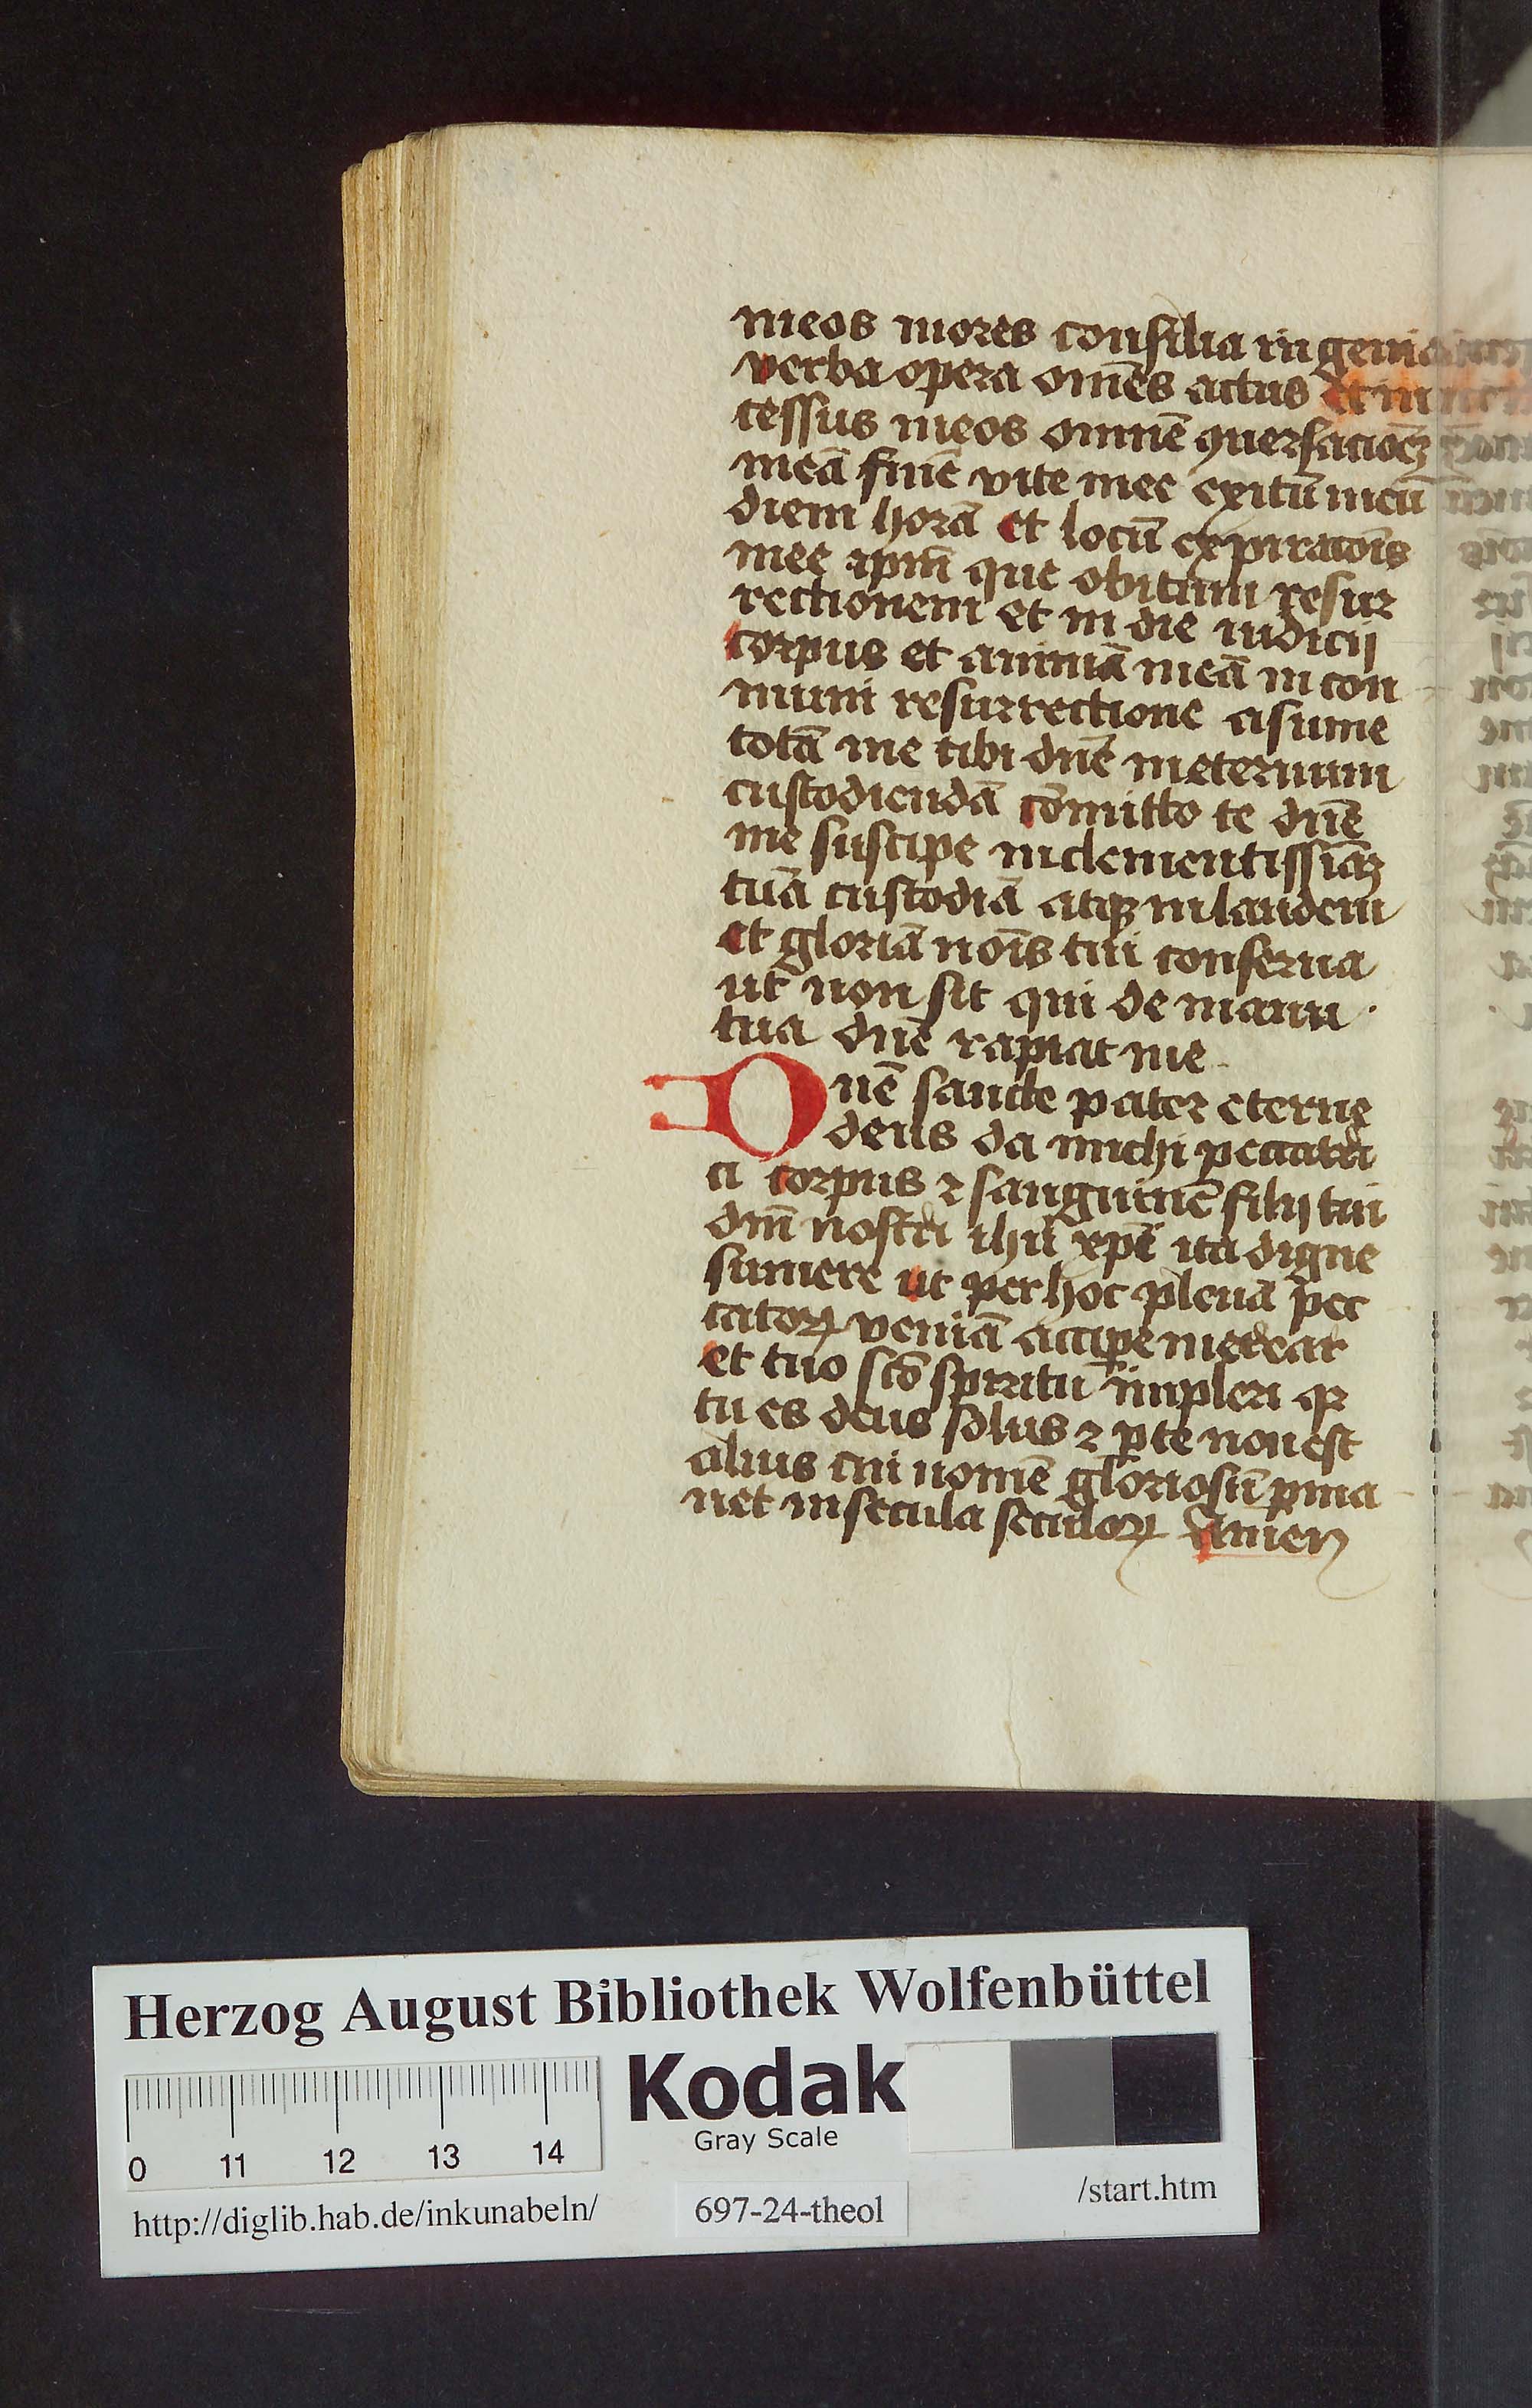 meos mores consilia ingenia
verba opera om̄es actus et in
cessus meos omnē ꝯuersacioēȝ
meā finē vite mee exitū meū
diem horā et locū expiratōis
mee ip̄m que obitum resur
rectionem et in die iudicij
corpus et animā meā in con
muni resurrectione asume
totā me tibi dn̄e in eternum
custodiendā cōmitto te dn̄e
me suscipe in clementissiāȝ
tuā custodiā atqȝ in laudem
et gloriā nōis tui conserua
ut non sit qui de manu
tua dn̄e rapiat me
Dn̄e sancte pater eterne
deus da michi peccatri
ci corpus ⁊ sanguinē filij tui
dn̄i nostri ihū xp̄i ita digne
sumere ut per hoc plenā pec
catoꝝ veniā accipe merear
et tuo scō spiritū impleri qꝛ
tu es deus solus ⁊ p̄ te non est
alius cui nomē gloriosū ꝑma
net in secula seculoꝝ Amen
Herzog August Bibliothek Wolfenbüttel
Kodak
Gray Scale
0 11 12 13 14
http://diglib.hab.de/inkunabeln/ 697-24-theol /start.htm